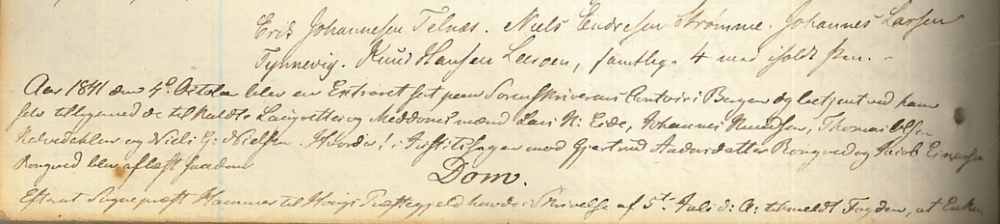 Erik Johannesen Telnæs. Niels Endresen Strømme. Johannes Larsen
Tynnevig. Knud Hansen Leeroen, samtlige 4 med iholdt Pen.
Aar 1841 den 4de October blev en Extraret sat paa Sorenskriverens Contoir i Bergen og betjent ved ham
selv tilligemed de tilkaldte Laugrettes og Meddoms mænd Lars N: Eide, Johannes Knudsen, Thomas Olsen
og Niels G: Nielsen. Hvorda! i Justitssagen mod Gjertrud Aadsdatter Rongved og Jacob Einersen
Rongved blev aflæst saadan
Dom.
Efterat Sognepræst Hammer til Hougs Præstegjeld havde i Skrivelse af 5te Juli d: A: tilmeldt Fogden, at Enken